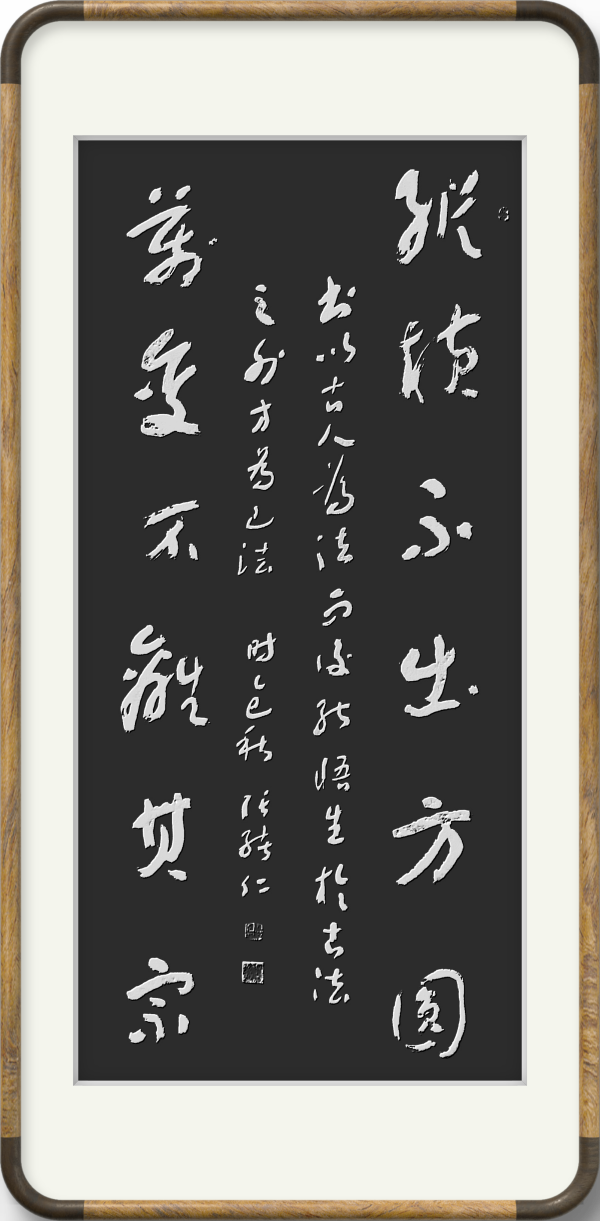 縱橫不出方圓
書以古人為法而後能悟生於古法
之外方為己法 時乙巳秋 張繞仁
萬變不離其宗